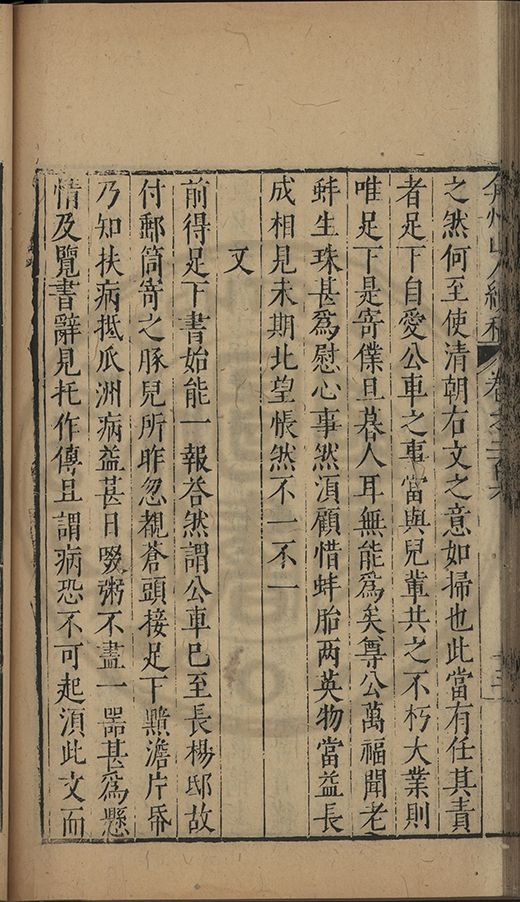 弇州山人續稿 卷之二百六 十三
之然何至使清朝右文之意如掃也此當有任其責
者足下自愛公車之事當與兒輩共之不朽大業則
唯足下是寄僕旦暮人耳無能爲矣尊公萬福聞老
蚌生珠甚爲慰心事然湏顧惜蚌胎两英物當益長
成相見未期北望悵然不一不一
又
前得足下書始能一報荅然謂公車已至長楊邸故
付郵筒寄之豚兒所昨忽覩蒼頭接足下黯澹片帋
乃知扶病抵瓜洲病益甚日啜粥不盡一噐甚爲懸
情及覽書辭見托作傳且謂病恐不可起湏此文而